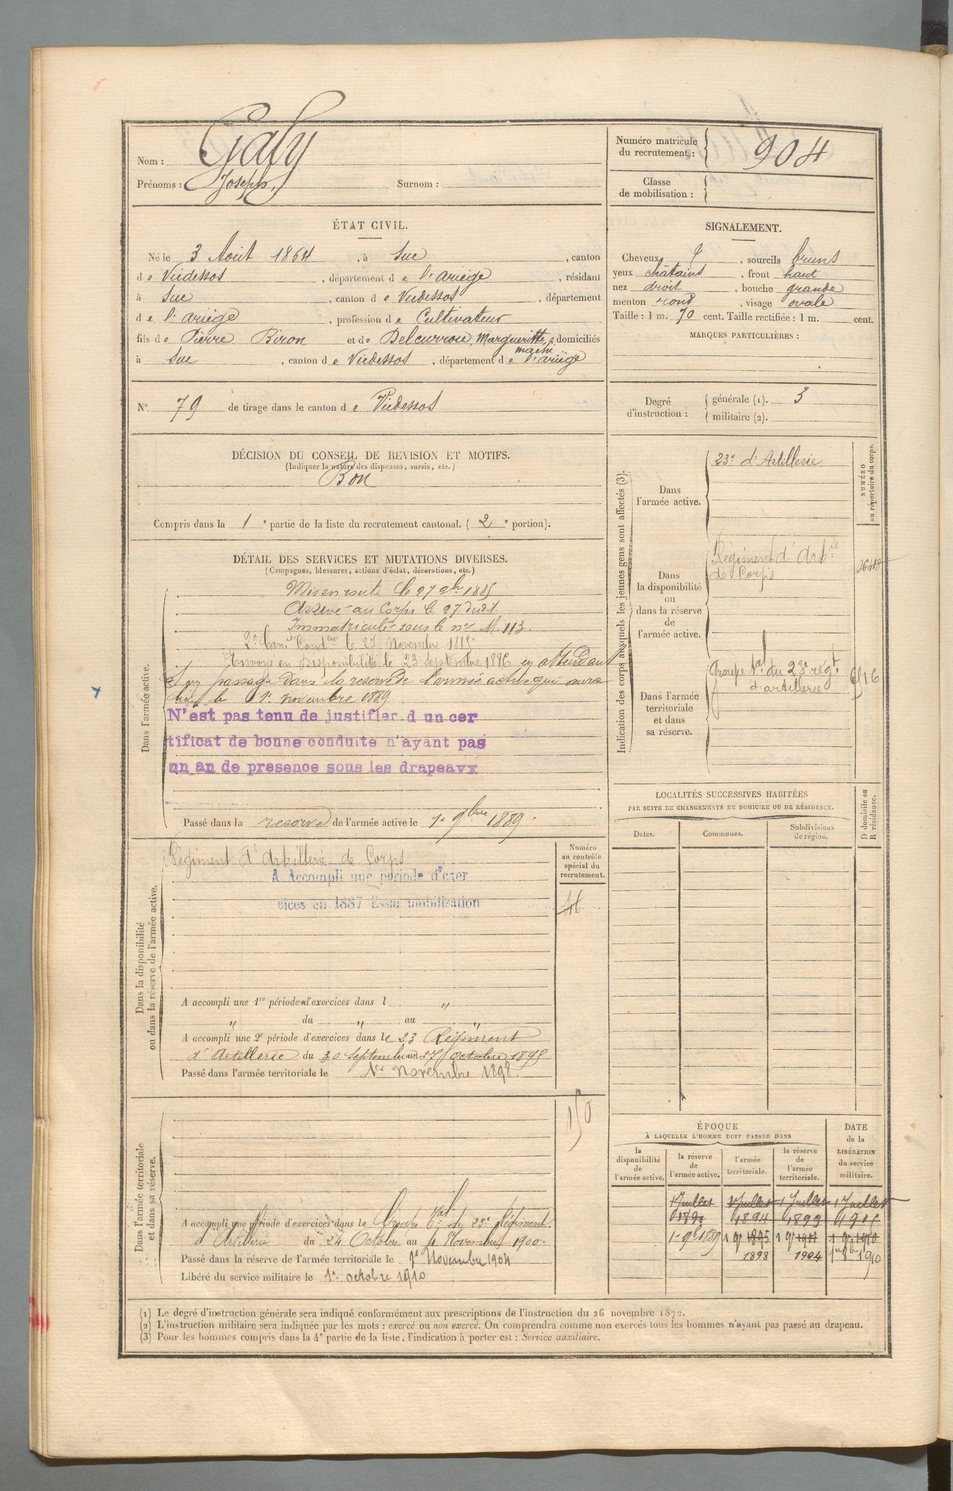 Nom : Galy
Prénoms : Joseph, Surnom :
Numéro matricule du recrutement : 904
Classe de mobilisation :
ÉTAT CIVIL.
Né le 3 Août 1864, à Suc, canton
de Vicdessos, département de l'ariège, résidant
à Suc, canton de Vicdessos, département
de l'ariège, profession de Cultivateur
fils de Pierre Biron et de Delcurrou, Margueritte, domiciliés
à Suc, canton de Vicdessos, département de l'ariège
N° 79 de tirage dans le canton de Vicdessos
SIGNALEMENT.
Cheveux, sourcils bruns
yeux châtains, front haut
nez droit, bouche grande
menton rond, visage ovale
Taille : 1 m. 70 cent. Taille rectifiée : 1 m. cent.
MARQUES PARTICULIÈRES :
Degré d'instruction : générale (1). 3
militaire (2).
DÉCISION DU CONSEIL DE REVISION ET MOTIFS.
(Indiquer la nature des dispenses, sursis, etc.)
Bon
Compris dans la 1e partie de la liste du recrutement cantonal. (2e portion).
DÉTAIL DES SERVICES ET MUTATIONS DIVERSES.
(Campagnes, blessures, actions d'éclat, décorations, etc.)
Dans l'armée active.
Mis en route le 27 9bre 1885
Arrivé au Corps le 27 dudit
Immatriculé sous le no M. 113.
le 27 Novembre 1885
Envoyé en disponibilité le 23 septembre 1886 en attendant
passage dans la réserve de l'armée active qui aura
lieu le 1er novembre 1889
N'est pas tenu de justifier d un cer
tificat de bonne conduite n'ayant pas
un an de presence sous les drapeaux
Passé dans la réserve de l'armée active le 1er 9bre 1889.
Dans la disponibilité ou dans la réserve de l'armée active.
Régiment d'Artillerie de Corps
A Accompli une période d'exer
cices en 1887 Essai mobilisation
Numéro au contrôle spécial du recrutement.
A accompli une 1re période d'exercices dans l "
" du " au "
A accompli une 2e période d'exercices dans le 23 Régiment
d'Artillerie du 30 septembre au 27 octobre 1895
Passé dans l'armée territoriale le 1er novembre 1898.
Dans l'armée territoriale et dans sa réserve.
A accompli une période d'exercices dans le Groupe du 23e Régiment
d'Artillerie du 24 Octobre au Novembre 1900.
Passé dans la réserve de l'armée territoriale le Novembre 1904
Libéré du service militaire le 1er octobre 1910
Indication des corps auxquels les jeunes gens sont affectés (3).
NUMÉRO au répertoire du corps.
Dans l'armée active.
23e d'Artillerie
Dans la disponibilité ou dans la réserve de l'armée active.
Régiment d'Artie
de Corps
Dans l'armée territoriale et dans sa réserve.
Groupe tal du 23e régt
d'artillerie
LOCALITÉS SUCCESSIVES HABITÉES
PAR SUITE DE CHANGEMENTS DE DOMICILE OU DE RÉSIDENCE.
Dates. Communes. Subdivisions de région. D domicile ou R résidence.
ÉPOQUE
À LAQUELLE L'HOMME DOIT PASSER DANS
DATE de la LIBÉRATION du service militaire.
la disponibilité de l'armée active. la réserve de l'armée active. l'armée territoriale. la réserve de l'armée territoriale.
1 Juillet 1 Juillet 1 Juillet 1 Juillet
1894 1899
1898 1904 1910
(1) Le degré d'instruction générale sera indiqué conformément aux prescriptions de l'instruction du 26 novembre 1872.
(2) L'instruction militaire sera indiquée par les mots : exercé ou non exercé. On comprendra comme non exercés tous les hommes n'ayant pas passé au drapeau.
(3) Pour les hommes compris dans la 4e partie de la liste, l'indication à porter est : Service auxiliaire.